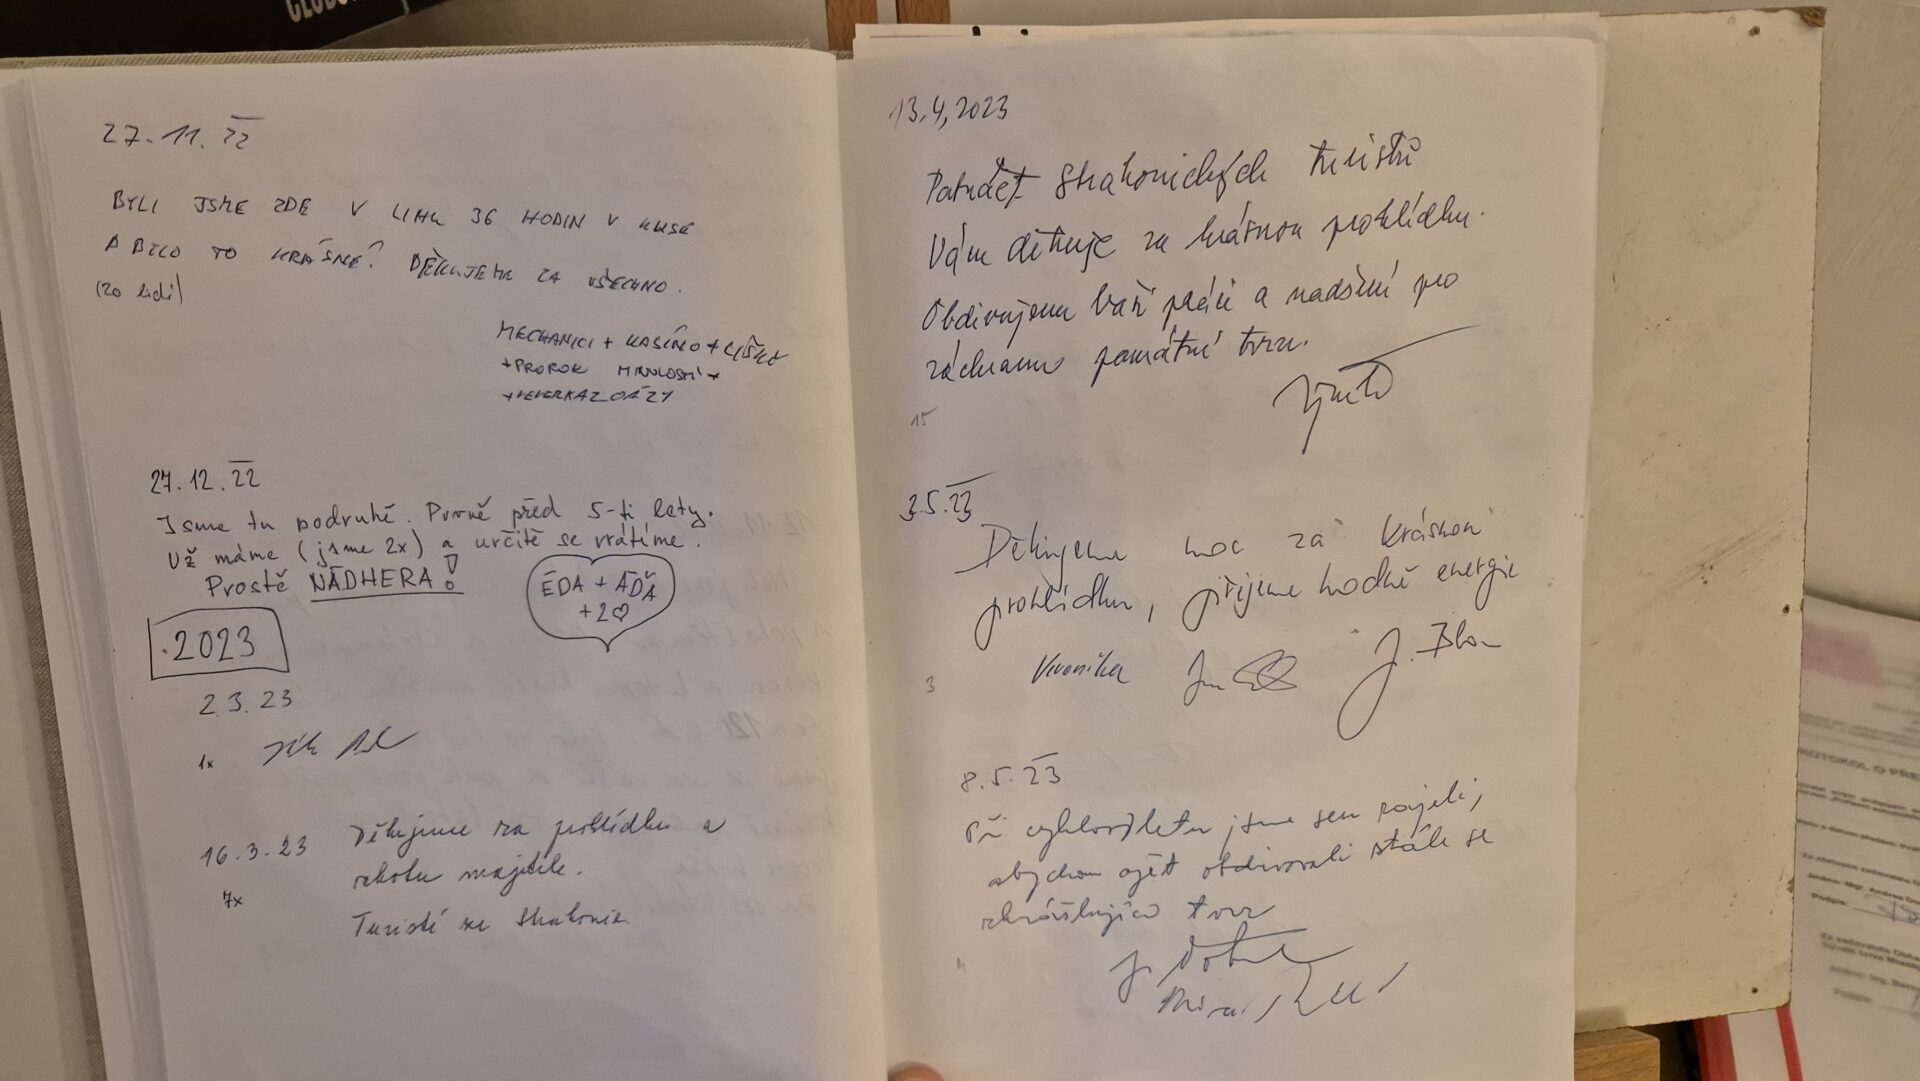 27.11.22
BYLI JSME ZDE V LIHU 36 HODIN V KUSE
A BYLO TO KRÁSNÉ! DĚKUJEME ZA VŠECHNO.
(20 lidí)
MECHANICI + KASÍNO +
+ PROROK MINULOSTI +
+ VEVERKA Z OÁZY
27.12.22
Jsme tu podruhé. Prvně před 5-ti lety.
Už máme (jsme 2x) a určitě se vrátíme.
Prostě NÁDHERA!
ÉDA + ÁĎA
+2♡
2023
2.3.23
1x
16.3.23
Děkujeme za prohlídku a
robotu majitele.
7x
Turisté ze Strakonic.
13.4.2023
Patnáct strakonických turistů
Vám děkuje za krásnou prohlídku.
Obdivujeme Vaši práci a nadšení pro
záchranu památné tvrze.
15
3.5.23
Děkujeme moc za krásnou
prohlídku, přejeme hodně energie
Veronika
3
8.5.23
Při cyklovýletu jsme sem zajeli,
abychom opět obdivovali stále se
zkrášlující tvrz
4